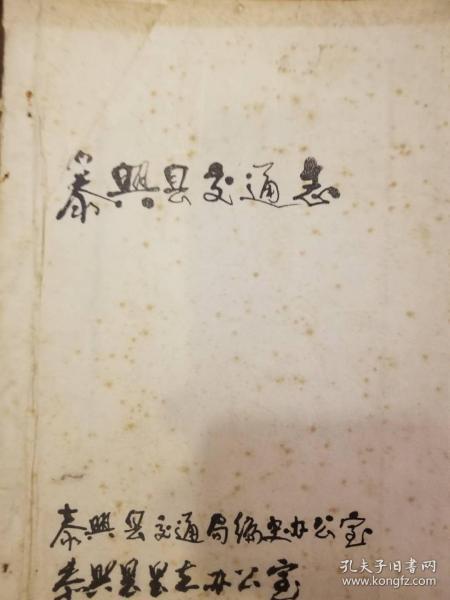 泰興县交通志
泰興县交通局编史办公室
泰興县县志办公室
孔夫子旧书网
www.kongfz.com